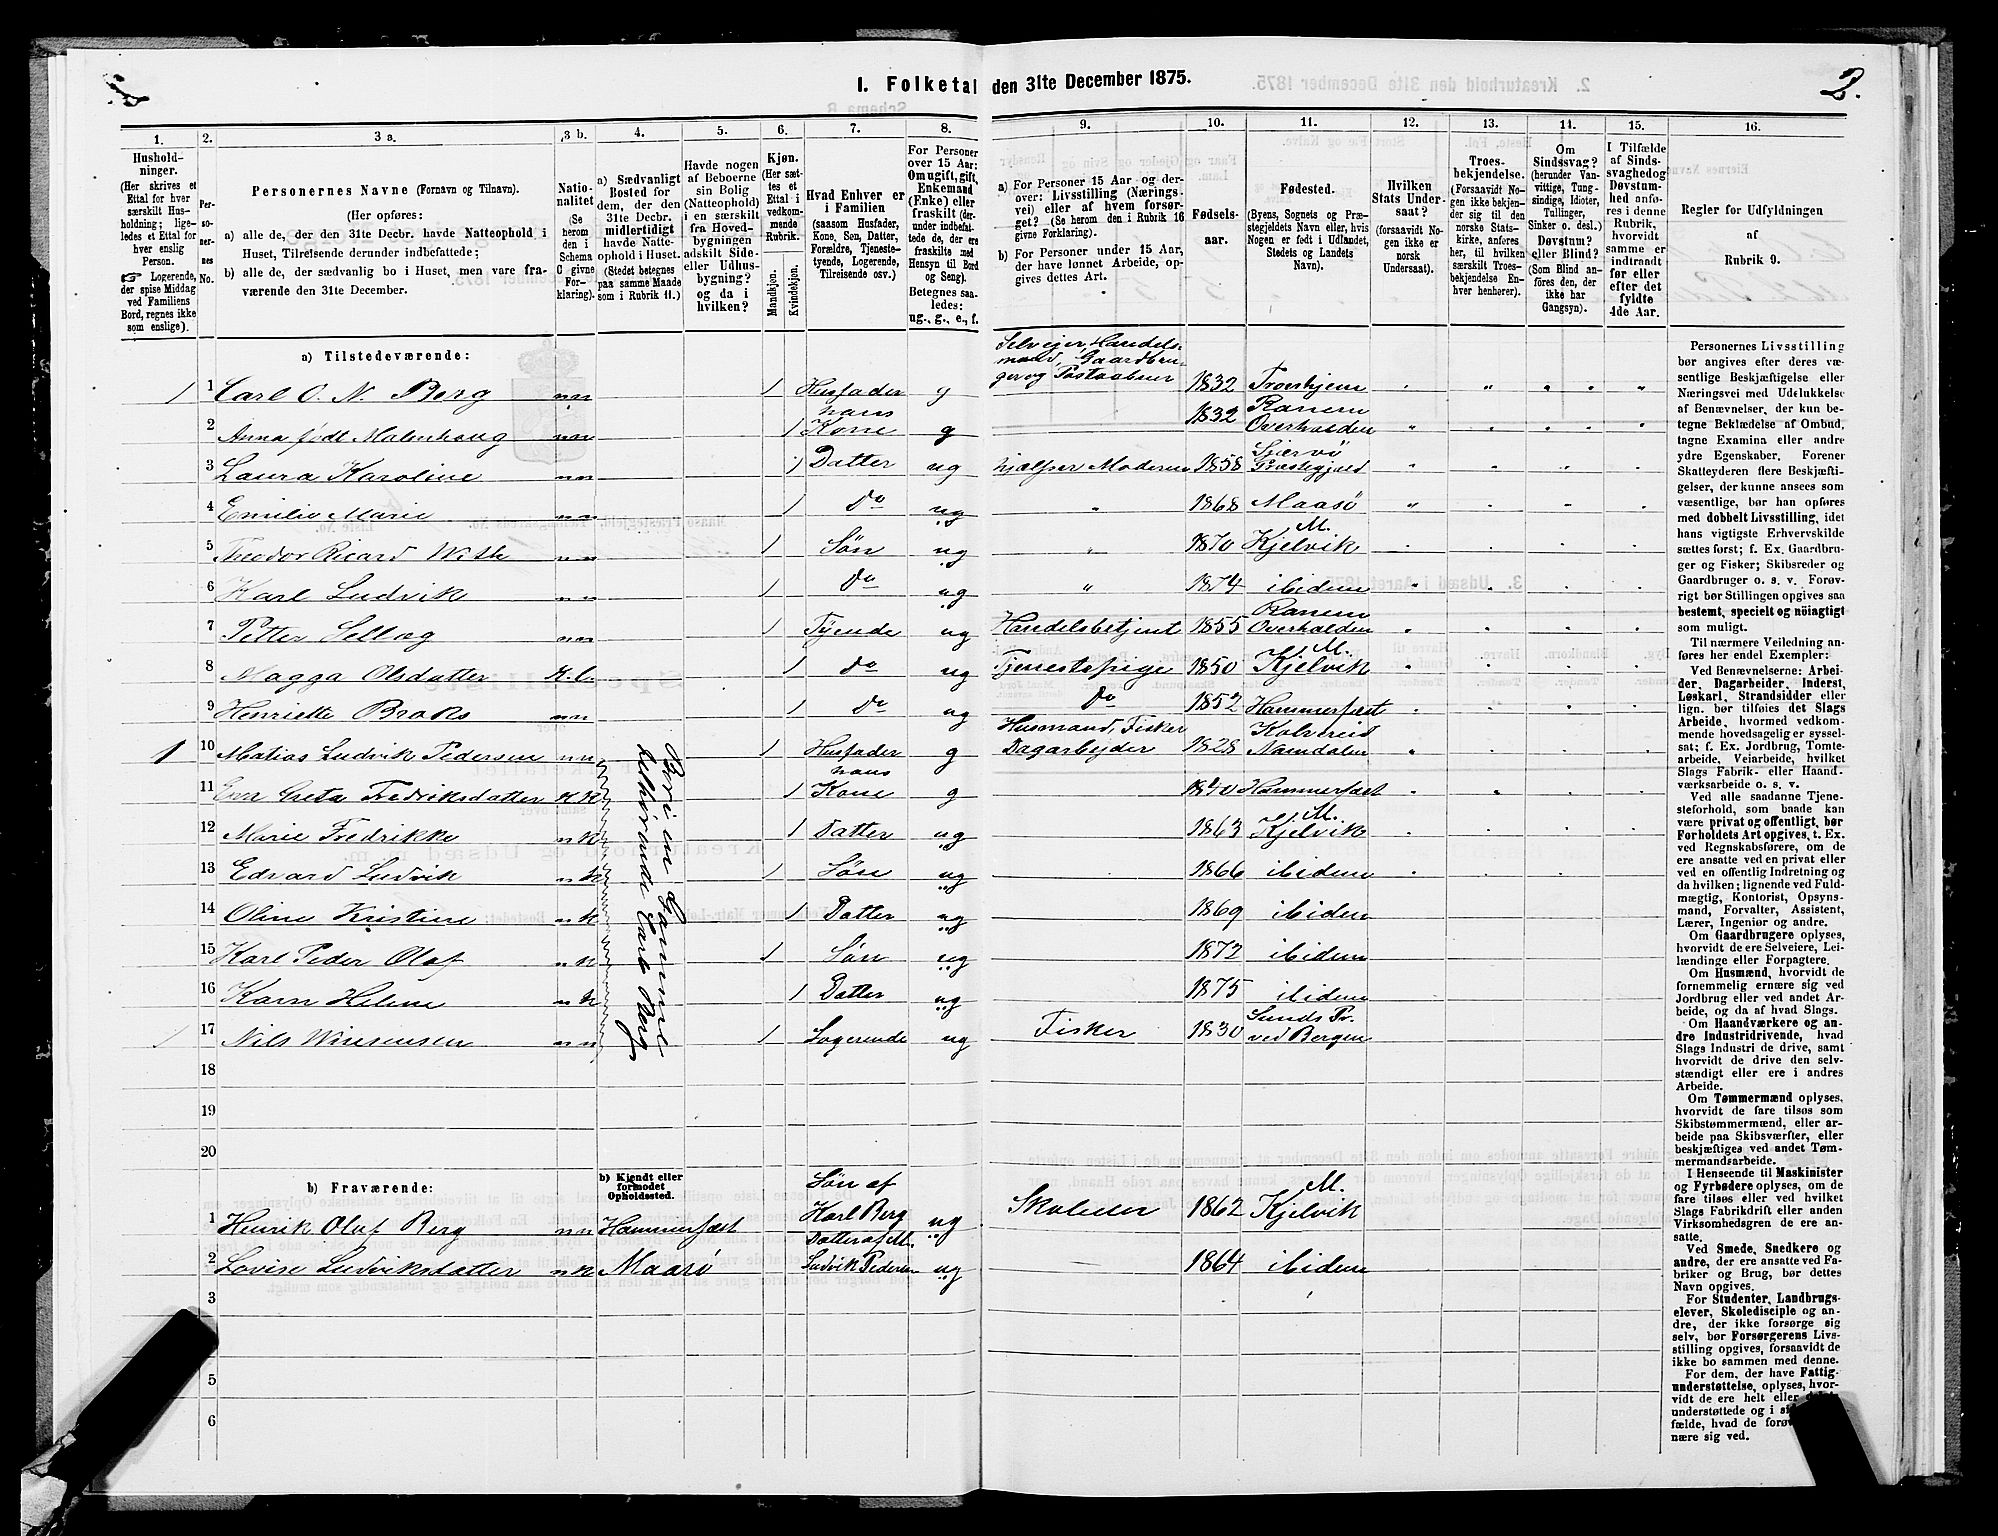 1. Folketal den 31te December 1875.
2.
1.
Hushold-
ninger.
(Her skrives et
Ettal for hver
særskilt Hus-
holdning; lige-
ledes et Ettal for
hver enslig
Person.
Logerende,
der spise Middag
ved Familiens
Bord, regnes ikke
som enslige).
2.
Per-
soner-
nes
No.
3 a.
Personernes Navne (Fornavn og Tilnavn).
(Her opføres:
a) alle de, der den 31te Decbr. havde Natteophold i
Huset, Tilreisende derunder indbefattede;
b) alle de, der sædvanlig bo i Huset, men vare fra-
værende den 31te December.
3 b.
Natio-
nalitet
(Se
herom
den i
Schema
C givne
For-
klaring).
4.
a) Sædvanligt
Bosted for
dem, der den
31te Decbr.
midlertidigt
havde Natte-
ophold i Huset.
(Stedet betegnes
paa samme Maade
som i Rubrik 11.)
5.
Havde nogen
af Beboerne
sin Bolig
(Natteophold)
i en særskilt
fra Hoved-
bygningen
adskilt Side-
eller Udhus-
bygning?
og da i
hvilken?
6.
Kjøn.
(Her sæt-
tes et
Ettal i
vedkom-
mende
Rubrik.
Mandkjøn.
Kvindekjøn.
7.
Hvad Enhver er
i Familien
(saasom Husfader,
Kone, Søn, Datter,
Forældre, Tjeneste-
tyende, Logerende,
Tilreisende osv.)
8.
For Personer
over 15 Aar:
Om ugift, gift,
Enkemand
(Enke) eller
fraskilt (der-
under indbefat-
tede de, der ere
fraskilte med
Hensyn til Bord
og Seng).
Betegnes saa-
ledes:
ug., g., e., f.
9.
a) For Personer 15 Aar og der-
over: Livsstilling (Nærings-
vei) eller af hvem forsør-
get? (Se herom den i Rubrik 16
givne Forklaring).
b) For Personer under 15 Aar,
der have lønnet Arbeide, op-
gives dettes Art.
10.
Fødsels-
aar.
11.
Fødested.
(Byens, Sognets og Præ-
stegjeldets Navn, eller hvis
Nogen er født i Udlandet,
Stedets og Landets
Navn).
12.
Hvilken
Stats Under-
saat?
(forsaavidt No-
gen ikke er
norsk
Undersaat).
13.
Troes-
bekjendelse.
(Forsaavidt No-
gen ikke bekjen-
der sig til den
norske Stats-
kirke, anføres
her, til hvilken
særskilt Troes-
bekjendelse En-
hver henhører).
14.
Om
Sindssvag?
(herunder Van-
vittige, Tung-
sindige, Idioter,
Tullinger,
Sinker o. desl.)
Døvstum?
eller Blind?
(Som Blind an-
føres den, der
ikke har
Gangsyn).
15.
I Tilfælde
af Sinds-
svaghed og
Døvstum-
hed anfø-
res i denne
Rubrik,
hvorvidt
samme er
indtraadt
før eller
efter det
fyldte
4de Aar.
16.
Regler for Udfyldningen
af
Rubrik 9.
a) Tilstedeværende:
Selveier, Handels-
mand, Gaardbru-
ger og Postaabner
1 1 Carl O. N. Berg nn 1 Husfader g 1832 Tronhjem
2 Anna født Malenhaug nn 1 hans Kone g 1832 Ranem Overhalden
3 Laura Karoline nn 1 Datter ug hjælper Moderen 1858 Sjervö Præstegjeld
4 Emilie Marie nn 1 Do ug 1868 Maasö
5 Theodor Ricard With nn 1 Søn ug 1870 M. Kjelvik
6 Karl Ludvik nn 1 Do ug 1874 ibidem
7 Petter Selløeg nn 1 Tyende ug Handelsbetjent 1855 Ranem Overhalden
8 Magga Olsdatter K.l. 1 Do ug Tjenestepige 1850 M. Kjelvik
9 Henriette Broks nn 1 Do ug Do 1852 Hammerfest
1 10 Matias Ludvik Pedersen nn 1 Husfader g Husmand, Fisker Dagarbejder 1828 Kolvereid Namdalen
11 Eva Greta Fredriksdatter k k 1 hans Kone g 1840 Hammerfest
12 Marie Fredrikke nk 1 Datter ug 1863 M. Kjelvik
13 Edvard Ludvik nk 1 Søn ug 1866 ibidem
14 Oline Kristine nk 1 Datter ug 1869 ibidem
15 Karl Peder Olaf nk 1 Søn ug 1872 ibidem
16 Karn Helene nk 1 Datter ug 1875 ibidem
1 17 Nils Winsensen nn 1 Logerende ug Fisker 1830 Sunds Pr. ved Bergen
Bor i en Gamme
tilhørende Carl Berg
18
19
20
b) Fraværende:
b) Kjendt eller
formodet
Opholdssted.
1 Henrik Olaf Berg nn Hammerfest Søn af Karl Berg ug Skoleelev 1862 M. Kjelvik
2 Lovise Ludviksdatter nk Maasö Datter af M. Ludvik Pedersen ug 1864 ibidem
3
4
5
6
Personernes Livsstilling
bør angives efter deres væ-
sentlige Beskjæftigelse eller
Næringsvei med Udelukkelse
af Benævnelser, der kun be-
tegne Beklædelse af Ombud,
tagne Examina eller andre
ydre Egenskaber. Forener
Skatteyderen flere Beskjæfti-
gelser, der kunne ansees som
væsentlige, bør han opføres
med dobbelt Livsstilling, idet
hans vigtigste Erhvervskilde
sættes først; f. Ex. Gaardbru-
ger og Fisker; Skibsreder og
Gaardbruger o. s. v. Forøv-
rigt bør Stillingen opgives saa
bestemt, specielt og nöiagtigt
som muligt.
Til nærmere Veiledning an-
føres her endel Exempler:
Ved Benævnelserne: Arbei-
der, Dagarbeider, Inderst,
Løskarl, Strandsidder eller
lign. bør tilføies det Slags
Arbeide, hvormed vedkom-
mende hovedsagelig er syssel-
sat; f. Ex. Jordbrug, Tomte-
arbeide, Veiarbeide, hvilket
Slags Fabrik- eller Haand-
værksarbeide o. s. v.
Ved alle saadanne Tjene-
steforhold, som baade kan
være privat og offentligt, bør
Forholdets Art opgives, t. Ex.
ved Regnskabsførere, om de
ere ansatte ved en privat eller
ved en offentlig Indretning og
da hvilken; lignende ved Fuld-
mægtig, Kontorist, Opsyns-
mand, Forvalter, Assistent,
Lærer, Ingeniør og andre.
Om Gaardbrugere oplyses,
hvorvidt de ere Selveiere, Lei-
lændinge eller Forpagtere.
Om Husmænd, hvorvidt de
fornemmelig ernære sig ved
Jordbrug eller ved andet Ar-
beide, og da af hvad Slags.
Om Haandværkere og an-
dre Industridrivende, hvad
Slags Industri de drive, samt
hvorvidt de drive den selv-
stændigt eller ere i andres
Arbeide.
Om Tømmermænd oplyses,
hvorvidt de fare tilsøs som
Skibstømmermænd, eller ar-
beide paa Skibsværfter, eller
beskjæftiges ved andet Tøm-
mermandsarbeide.
I Henseende til Maskinister
og Fyrbødere oplyses, om de
fare tilsøs eller ved hvilket
Slags Fabrikdrift eller anden
Virksomhedsgren de ere an-
satte.
Ved Smede, Snedkere og
andre, der ere ansatte ved Fa-
briker og Brug, bør dettes
Navn opgives.
For Studenter, Landbrugs-
elever, Skoledisciple og an-
dre, der ikke forsørge sig
selv, bør Forsørgerens Livs-
stilling opgives, forsaavidt de
ikke bo sammen med denne.
For dem, der have Fattig-
understøttelse, oplyses, hvor-
vidt de ere helt eller
understøttede og i
fælde, hvad de
nære sig ved.